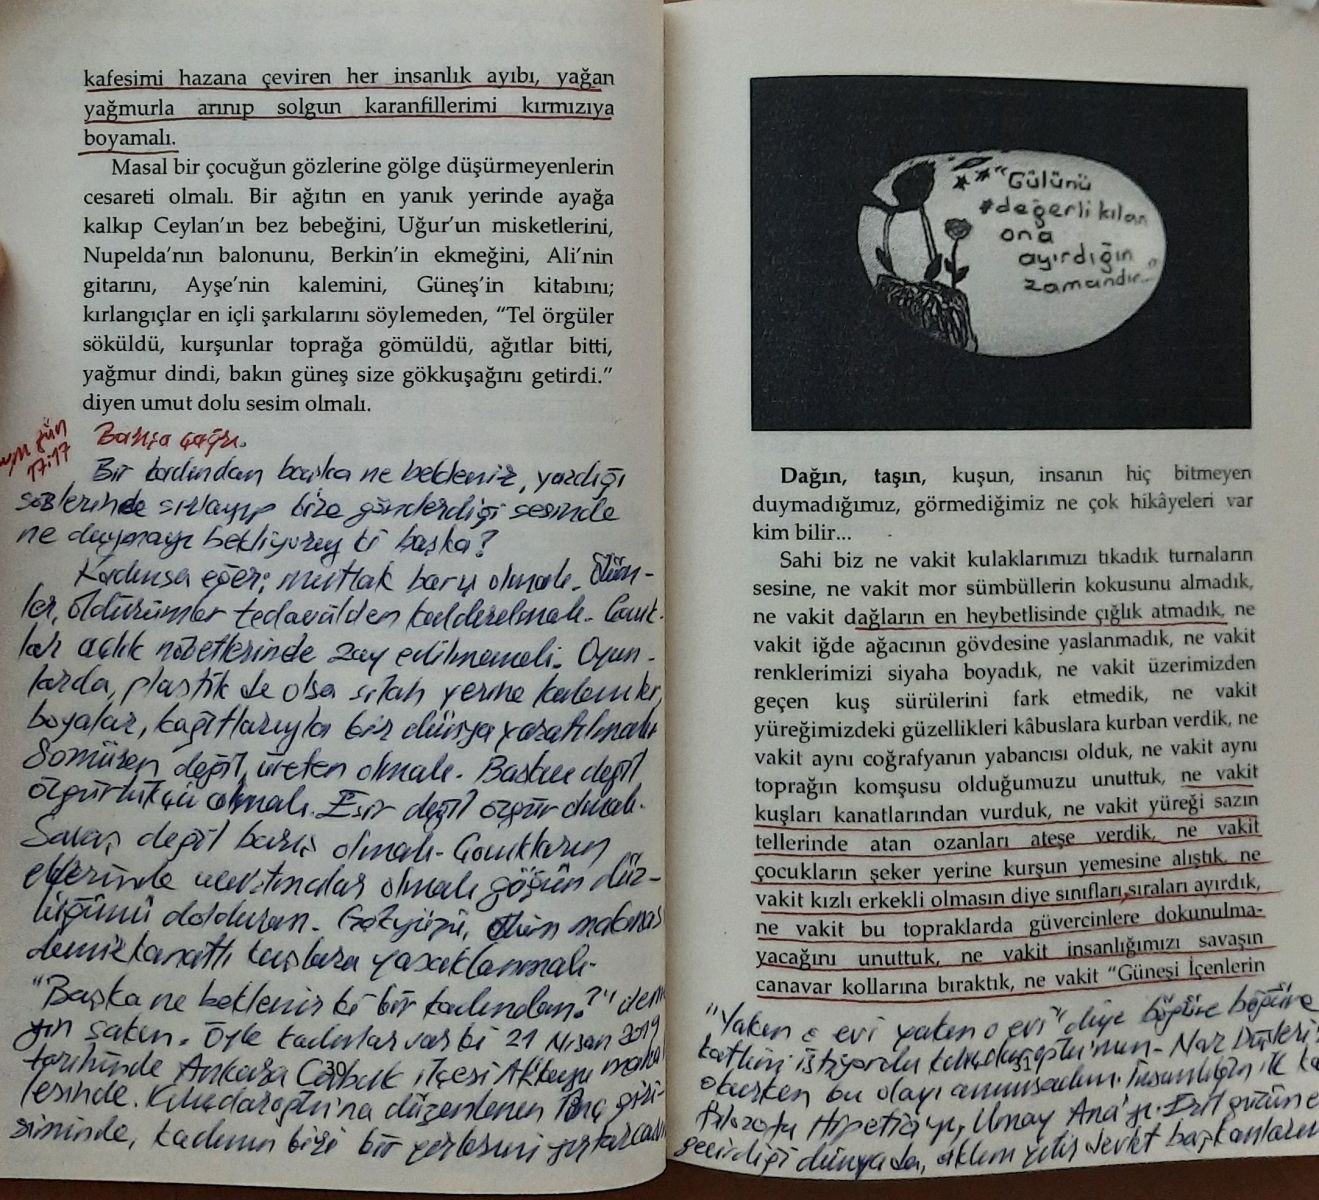 kafesimi hazana çeviren her insanlık ayıbı, yağan
yağmurla arınıp solgun karanfillerimi kırmızıya
boyamalı.
Masal bir çocuğun gözlerine gölge düşürmeyenlerin
cesareti olmalı. Bir ağıtın en yanık yerinde ayağa
kalkıp Ceylan’ın bez bebeğini, Uğur’un misketlerini,
Nupelda’nın balonunu, Berkin’in ekmeğini, Ali’nin
gitarını, Ayşe’nin kalemini, Güneş’in kitabını;
kırlangıçlar en içli şarkılarını söylemeden, “Tel örgüler
söküldü, kurşunlar toprağa gömüldü, ağıtlar bitti,
yağmur dindi, bakın güneş size gökkuşağını getirdi.”
diyen umut dolu sesim olmalı.
aynı gün
17:17
Barışa çağrı.
Bir kadından başka ne beklenir, yazdığı
sözlerinde sırlayıp bize gönderdiği sesinde
ne duymayı bekliyoruz ki başka?
Kadınsa eğer; mutlak barış olmalı. Ölüm-
ler, öldürümler tedavülden kaldırılmalı. Çocuk-
lar açlık nöbetlerinde zay edilmemeli. Oyun-
larda, plastik de olsa silah yerine kalemler,
boyalar, kağıtlarıyla bir dünya yaratılmalı
Sömüren değil, üreten olmalı. Baskıcı değil
özgürlükçü olmalı. Esir değil özgür olmalı.
Savaş değil barış olmalı. Çocukların
ellerinde uçurtmalar olmalı göğün düz-
lüğünü dolduran. Gökyüzü, ölüm makinası
demir kanatlı kuşlara yasaklanmalı.
"Başka ne beklenir ki bir kadından?" deme-
yin sakın. Öyle kadınlar var ki 21 Nisan 2019
tarihinde Ankara Çubuk ilçesi Akkuzu mahal-
lesinde. Kılıçdaroğlu'na düzenlenen linç giri-
şiminde, kadının biri bir yerlerini yırtarcasına
30
“Gülünü
değerli kılan
ona
ayırdığın
zamandır..”
Dağın, taşın, kuşun, insanın hiç bitmeyen
duymadığımız, görmediğimiz ne çok hikâyeleri var
kim bilir...
Sahi biz ne vakit kulaklarımızı tıkadık turnaların
sesine, ne vakit mor sümbüllerin kokusunu almadık,
ne vakit dağların en heybetlisinde çığlık atmadık, ne
vakit iğde ağacının gövdesine yaslanmadık, ne vakit
renklerimizi siyaha boyadık, ne vakit üzerimizden
geçen kuş sürülerini fark etmedik, ne vakit
yüreğimizdeki güzellikleri kâbuslara kurban verdik, ne
vakit aynı coğrafyanın yabancısı olduk, ne vakit aynı
toprağın komşusu olduğumuzu unuttuk, ne vakit
kuşları kanatlarından vurduk, ne vakit yüreği sazın
tellerinde atan ozanları ateşe verdik, ne vakit
çocukların şeker yerine kurşun yemesine alıştık, ne
vakit kızlı erkekli olmasın diye sınıfları,sıraları ayırdık,
ne vakit bu topraklarda güvercinlere dokunulma-
yacağını unuttuk, ne vakit insanlığımızı savaşın
canavar kollarına bıraktık, ne vakit “Güneşi İçenlerin
"Yakın o evi yakın o evi" diye böğüre böğüre
katlini istiyordu Kılıçdaroğlu'nun. Nar Düşleri'ni
31
okurken bu olayı anımsadım. İnsanlığın ilk
filozofu Hipetia'yı, Umay Ana'yı. Eril gücün e
geçirdiği dünyada, aklını yitir devlet başkanların